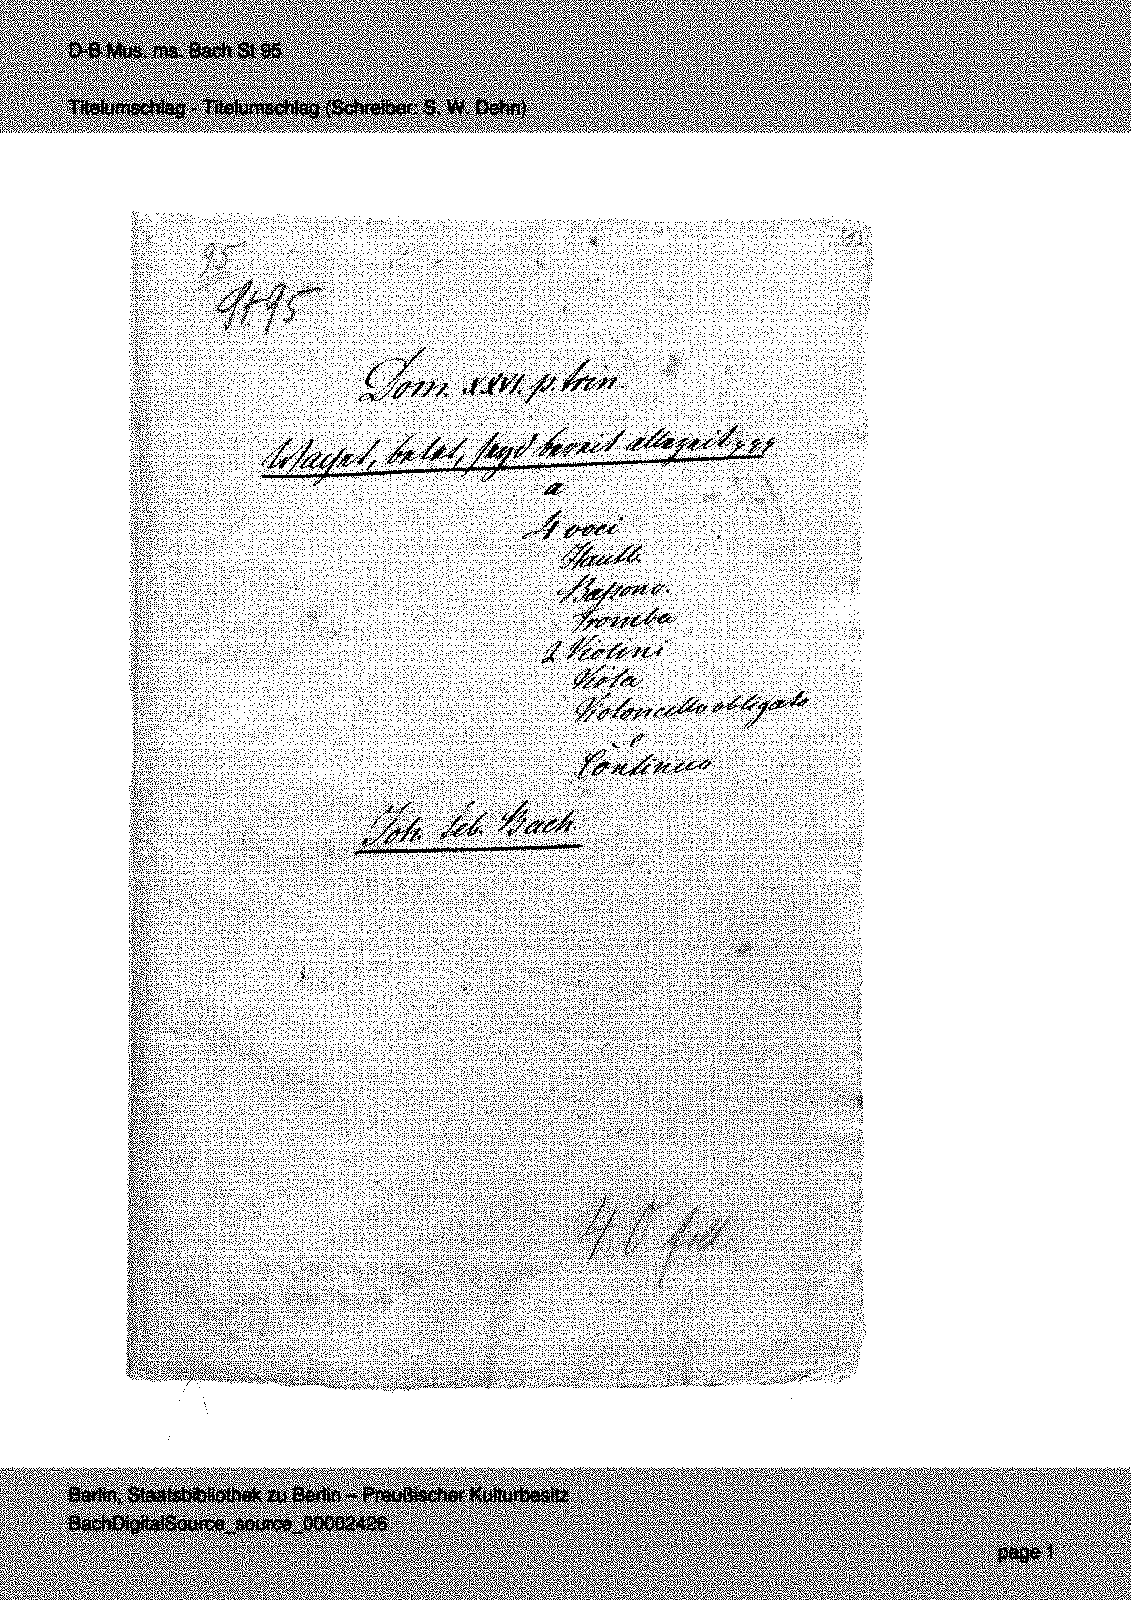 D-B Mus. ms. Bach St 95
Titelumschlag - Titelumschlag (Schreiber: S. W. Dehn)
95
St 95
Dom. XXVI. p. trin.
Wachet, betet, seyd bereit allezeit
a
4 voci
Hautb.
Bassono.
Tromba
2 Violini
Viola
Violoncello obligato
e
Continuo
Joh. Seb. Bach.
Berlin, Staatsbibliothek zu Berlin – Preußischer Kulturbesitz
BachDigitalSource_source_00002426
page 1